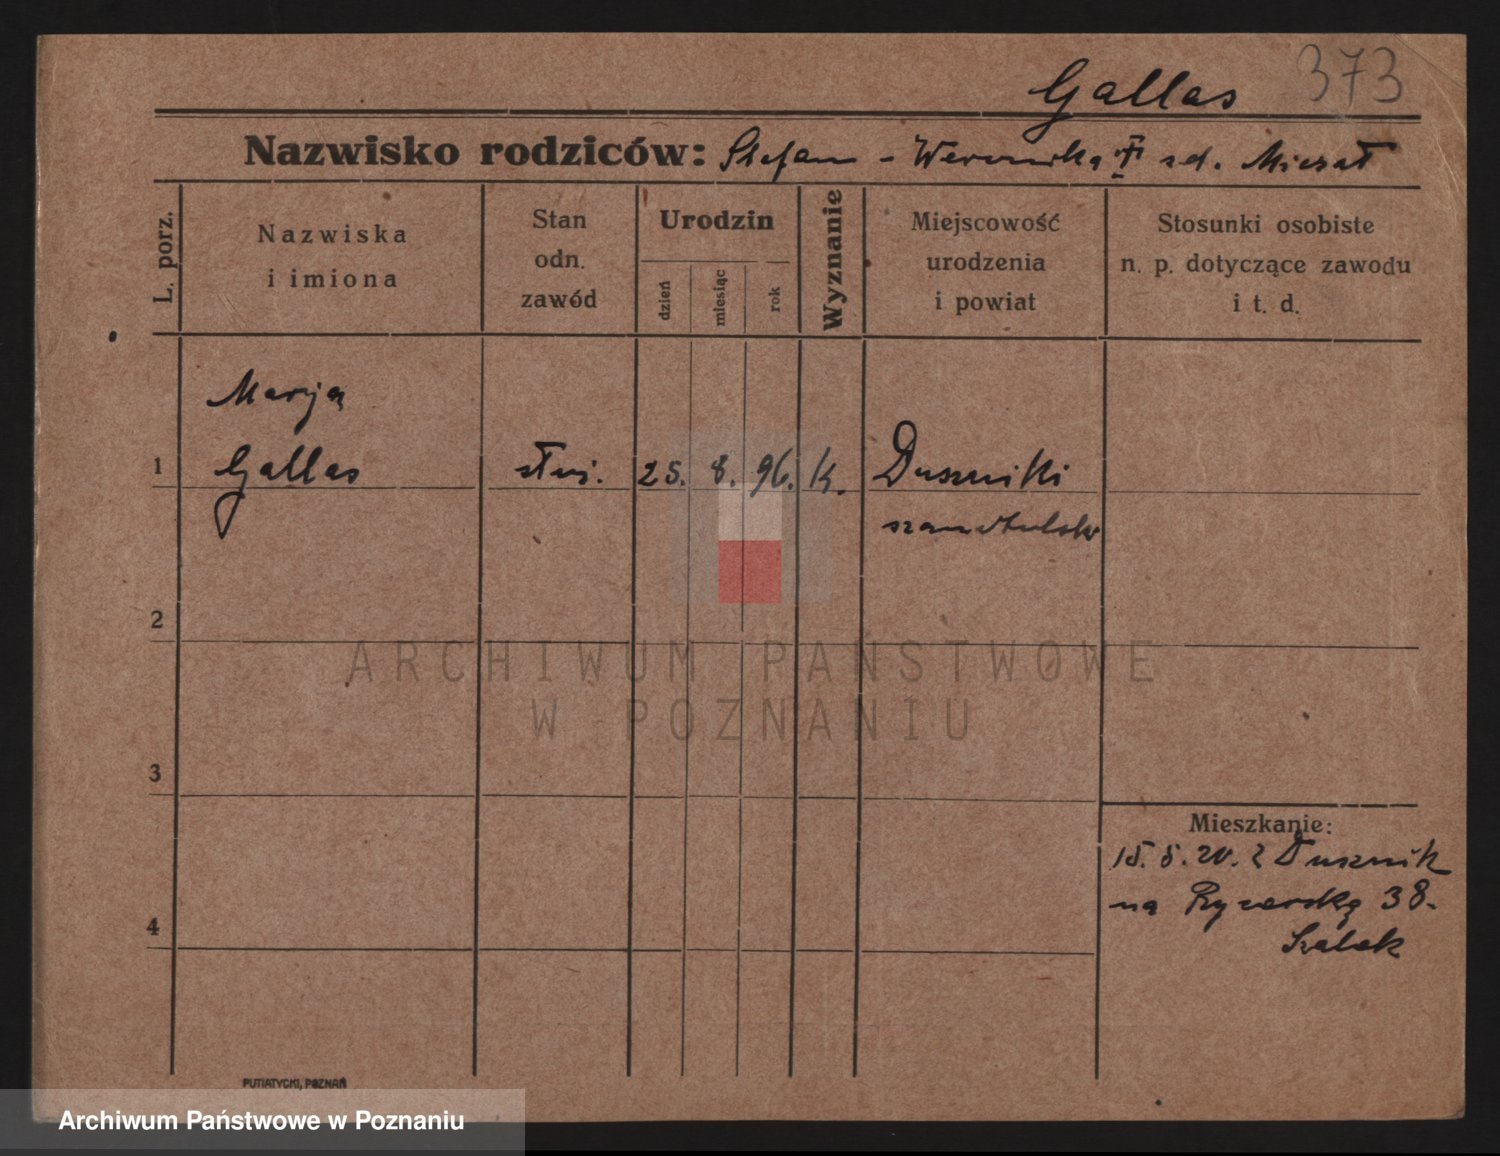 Gallas 373
Nazwisko rodziców: Stefan - Weronika zd. Mieszał
L. porz.
Nazwiska
i imiona
Stan
odn.
zawód
Urodzin
dzień
miesiąc
rok
Wyznanie
Miejscowość
urodzenia
i powiat
Stosunki osobiste
n. p. dotyczące zawodu
i t. d.
Marja
1 Gallas służ. 25. 8. 96. k. Duszniki
szamotulski
2
3
4
ARCHIWUM PAŃSTWOWE
W POZNANIU
Mieszkanie:
15. 5. 20. z Dusznik
na Rycerską 38.
PUTIATYCKI, POZNAŃ
Archiwum Państwowe w Poznaniu